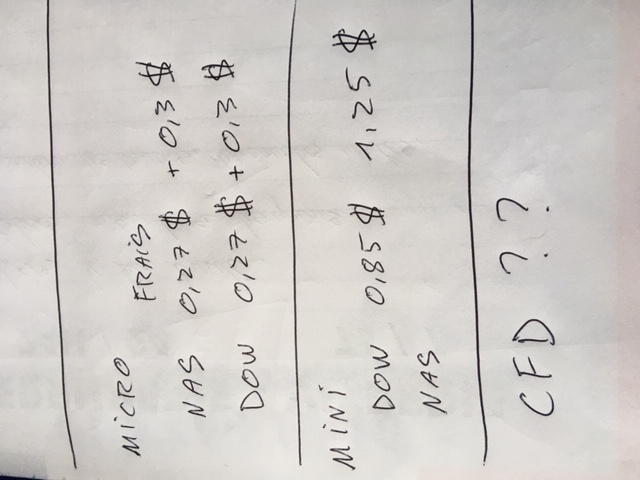 MICRO FRAIS
NAS 0,27 $ + 0,3 $
DOW 0,27 $ + 0,3 $
MINI
DOW 0,85 $ 1,25 $
NAS
CFD ??